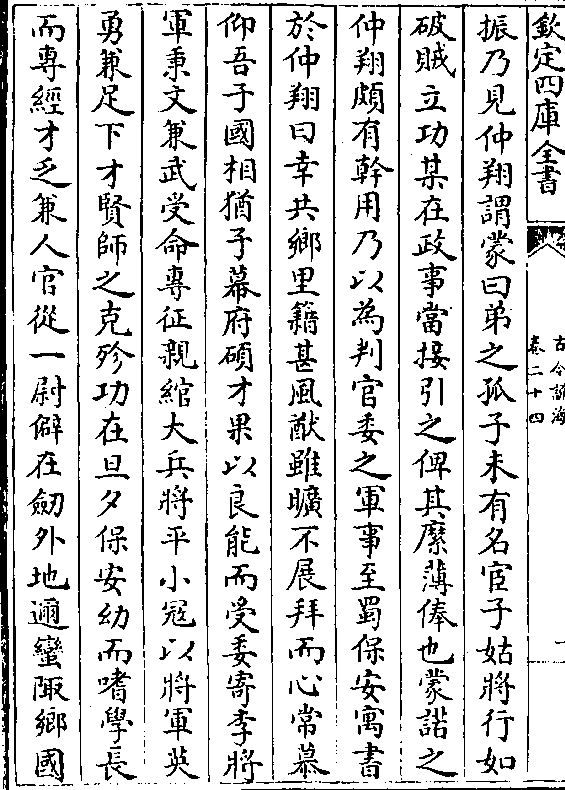 欽定四庫全書
古今說海
卷二十四
振乃見仲翔謂蒙曰弟之孤子未有名宦子姑將行如
破賊立功某在政事當接引之俾其縻薄俸也蒙諾之
仲翔頗有幹用乃以為判官委之軍事至蜀保安寓書
於仲翔曰幸共鄉里籍甚風猷雖曠不展拜而心常慕
仰吾子國相猶子幕府碩才果以良能而受委寄李將
軍秉文兼武受命專征親綰大兵將平小冦以將軍英
勇兼足下才賢師之克殄功在旦夕保安幼而嗜學長
而專經才乏兼人官從一尉僻在劒外地邇蠻陬鄉國